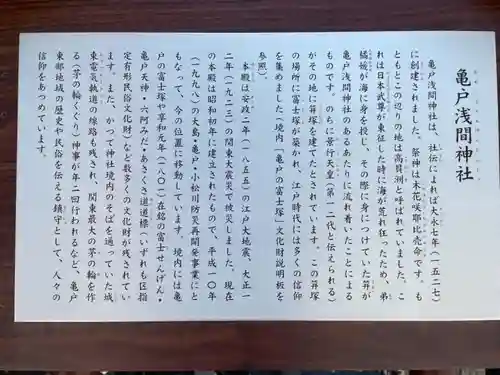 亀戸浅間神社
亀戸浅間神社は、社伝によれば大永七年（一五二七）
に創建されました。祭神は木花咲耶比売命です。も
ともとこの辺りの地は高貝洲と呼ばれていました。こ
れは日本武尊が東征した時に海が荒れ狂ったため、弟
橘媛が海に身を投じ、その際に身につけていた笄が
亀戸浅間神社のあるあたりに流れ着いたことによる
ものです。のちに景行天皇（第一二代と伝えられる）
がその地に笄塚を建てたとされています。この笄塚
の場所に富士塚が築かれ、江戸時代には多くの信仰
を集めました（境内「亀戸の富士塚」文化財説明板を
参照）。
本殿は安政二年（一八五五）の江戸大地震、大正一
二年（一九二三）の関東大震災で被災しました。現在
の本殿は昭和初年に建立されたもので、平成一〇年
（一九九八）の大島・亀戸・小松川防災再開発事業にと
もなって、今の位置に移動しています。境内には亀
戸の富士塚や享和元年（一八〇一）在銘の富士せんげん・
亀戸天神・六阿みだ・あさくさ道道標（いずれも区指
定有形民俗文化財）など数多くの文化財が残されてい
ます。また、かつて神社境内のそばを通っていた城
東電気軌道の線路も残され、関東最大の茅の輪を作
る（茅の輪くぐり）神事が年二回行われるなど、亀戸
東部地域の歴史や民俗を伝える鎮守として、人々の
信仰をあつめています。